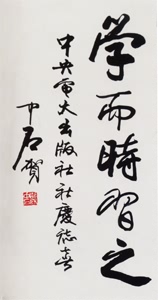 学而時習之
中央電大出版社社慶誌喜
中石賀